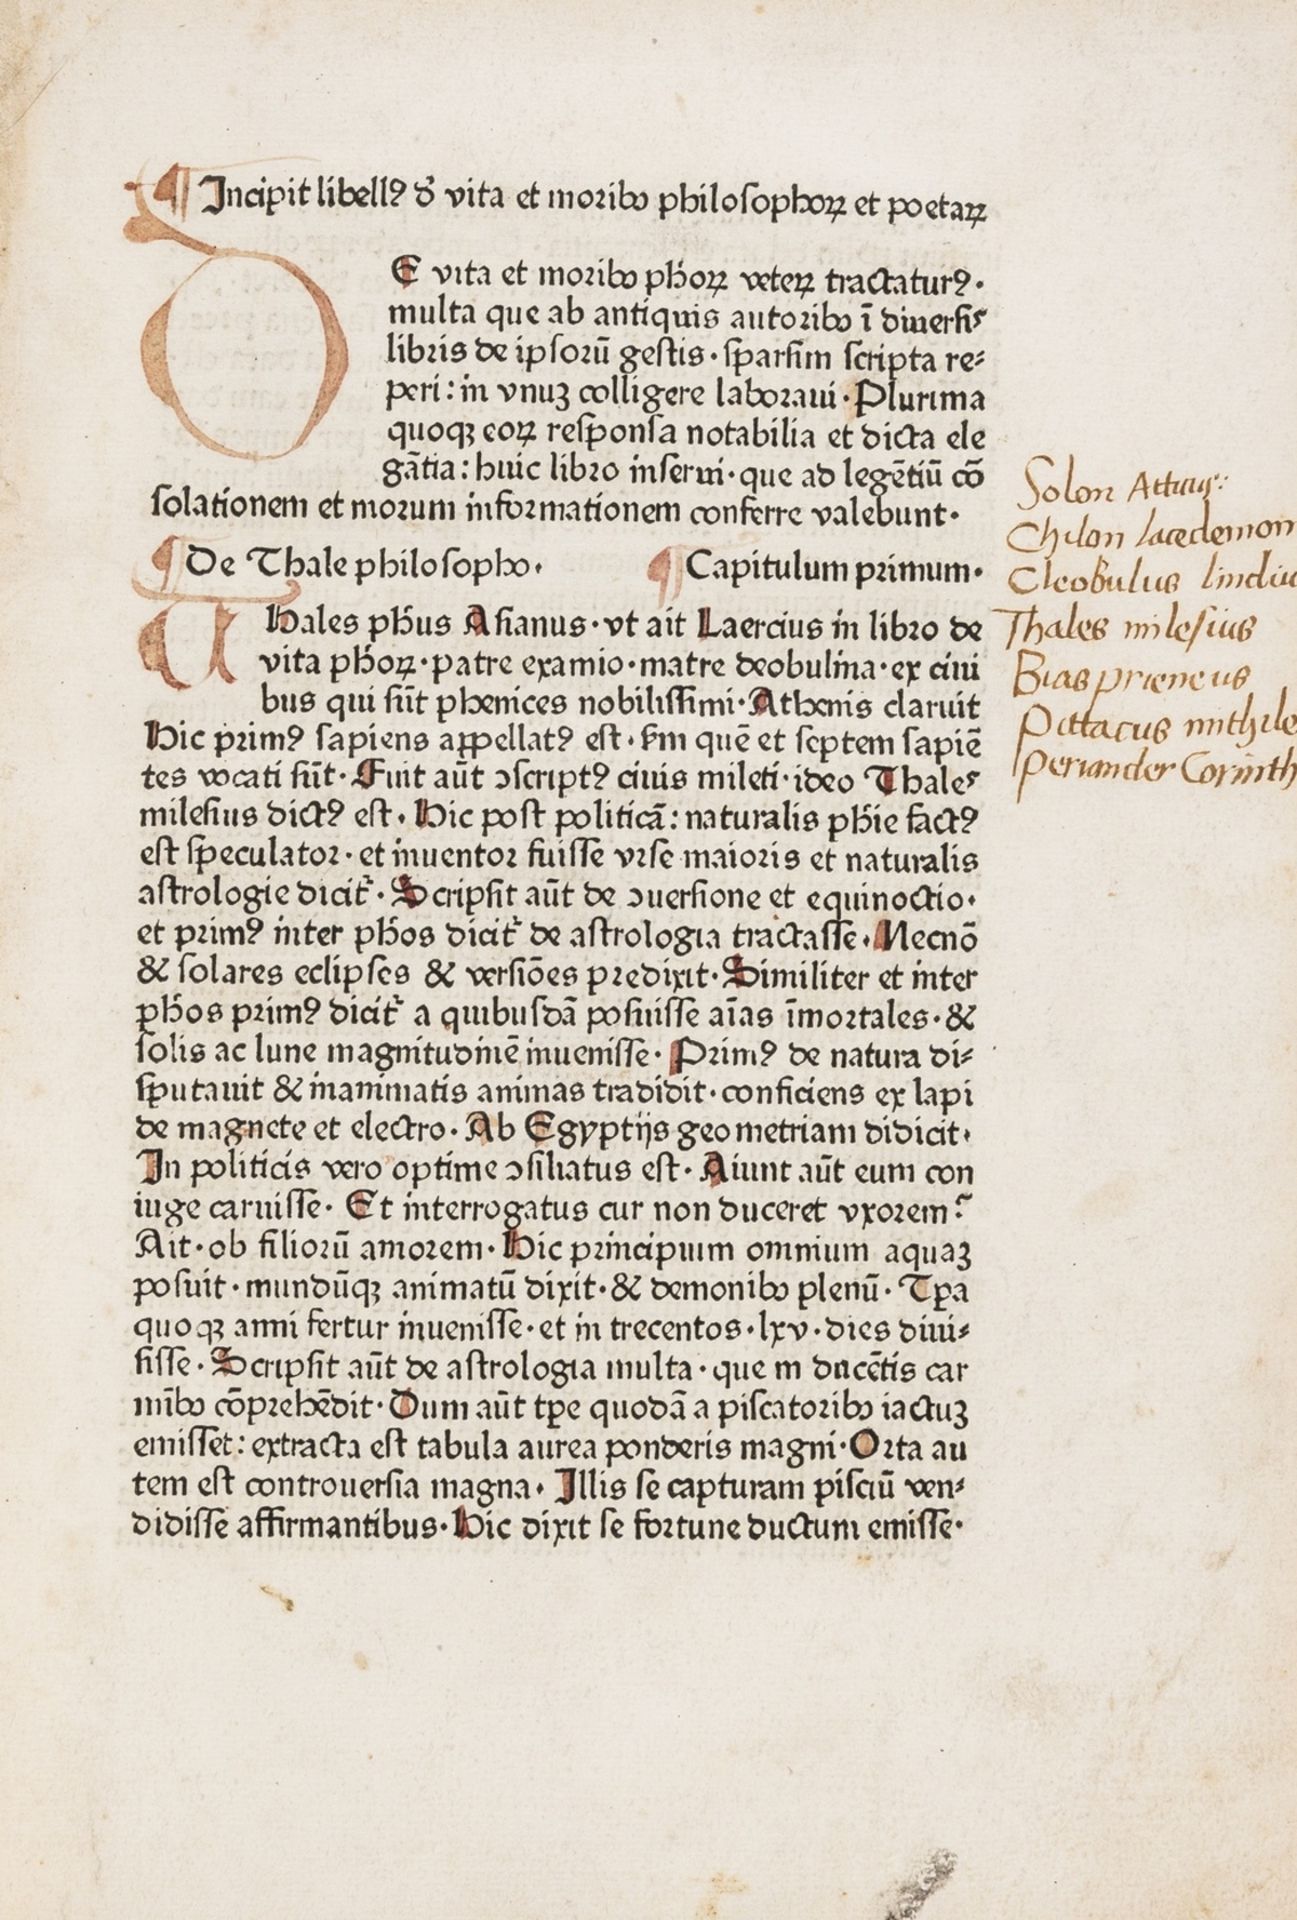 ¶ Incipit libellꝰ ð vita et moribꝰ philosophoꝝ et poetaꝝ
DE vita et moribꝰ ph̄oꝝ veteꝝ tractaturꝰ·
multa que ab antiquis autoribꝰ ī diuersis
libris de ipsorū gestis·sparsim scripta re⸗
peri: in vnuꝫ colligere laboraui·Plurima
quoqꝫ eoꝝ responsa notabilia et dicta ele
gātia: huic libro inserui·que ad legētiū cō
solationem et morum informationem conferre valebunt·
¶ De Thale philosopho· ¶ Capitulum primum·
THales ph̄us Asianus·vt ait Laercius in libro de
vita ph̄oꝝ·patre examio·matre deobulina·ex ciui
bus qui sūt phenices nobilissimi·Athenis claruit
Hic primꝰ sapiens appellatꝰ est·ẜm quē et septem sapiē
tes vocati sūt·Fuit aūt ꝯscriptꝰ ciuis mileti·ideo Thales
milesius dictꝰ est·Hic post politicā: naturalis ph̄ie factꝰ
est speculator·et inuentor fuisse vrse maioris et naturalis
astrologie dicit᷑·Scripsit aūt de ꝯuersione et equinoctio·
et primꝰ inter ph̄os dicit᷑ de astrologia tractasse·Necnō
& solares eclipses & versiōes predixit·Similiter et inter
ph̄os primꝰ dicit᷑ a quibusdā posuisse aīas īmortales·&
solis ac lune magnitudinē inuenisse·Primꝰ de natura di⸗
sputauit & inanimatis animas tradidit·conficiens ex lapi
de magnete et electro·Ab Egyptijs geometriam didicit·
In politicis vero optime ꝯsiliatus est·Aiunt aūt eum con
iuge caruisse·Et interrogatus cur non duceret vxorem?
Ait·ob filiorū amorem·Hic principium omnium aquaꝫ
posuit·mundūqꝫ animatū dixit·& demonibꝰ plenū·Tꝑa
quoqꝫ anni fertur inuenisse·et in trecentos·lxv·dies diui⸗
sisse·Scripsit aūt de astrologia multa·que in ducētis car
minībꝰ cōprehēdit·Dum aūt tꝑe quodā a piscatoribꝰ iactuꝫ
emisset: extracta est tabula aurea ponderis magni·Orta au
tem est controuersia magna·Illis se capturam pisciū ven⸗
didisse affirmantibus·Hic dixit se fortune ductum emisse·
Solon Atticus:
Chilon lacedemon
Cleobulus lindiu
Thales milesius
Bias prieneus
Pittacus mithile
Periander Corinth